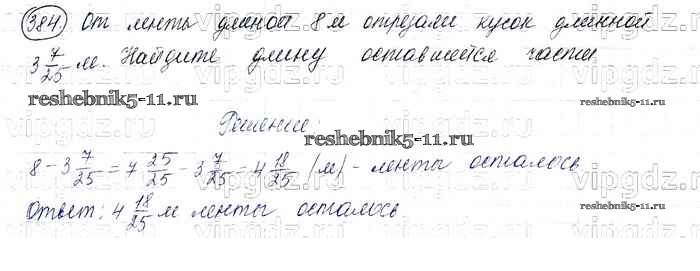 384. От ленты длиной 8 м отрезали кусок длинной
3 7/25 м. Найдите длину оставшейся части
reshebnik5-11.ru
reshebnik5-11.ru
Решение:
reshebnik5-11.ru
8 - 3 7/25 = 7 25/25 - 3 7/25 = 4 18/25 (м) - ленты осталось
Ответ: 4 18/25 м ленты осталось
vipgdz.ru